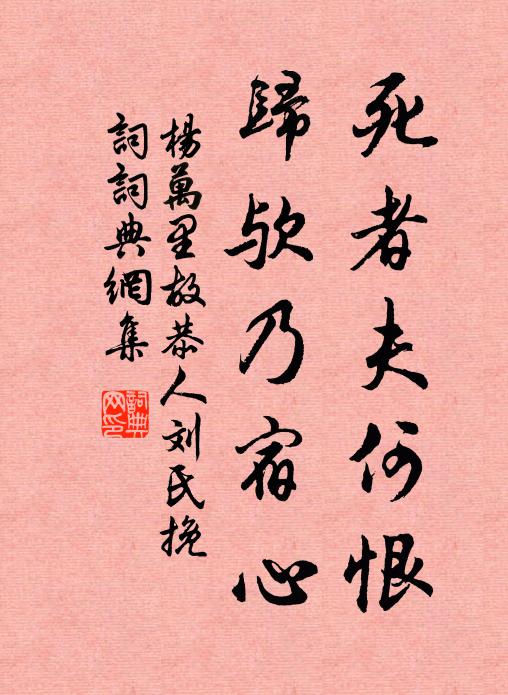 死者夫何恨
歸欤乃宿心
楊萬里故恭人刘氏挽
詞詞典網集
詞典网印